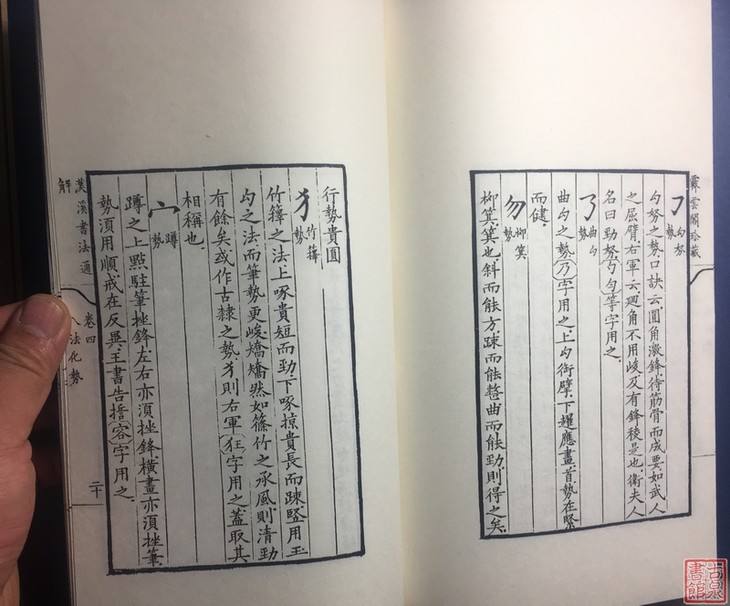 霽雲閣珍藏
𠃌勾努勢
勾努之勢口訣云圓角激鋒待筋骨而成要如武人
之屈臂右軍云迴角不用峻及有鋒稜是也衛夫人
名曰勁努勺勻等字用之
了曲勾勢
曲勾之勢乃字用之上勾銜臂下趯應畫首勢在緊
而健
勿柳箕勢
柳箕箕也斜而能方疎而能整曲而能勁則得之矣
行勢貴圓
犭竹籜勢
竹籜之法上啄貴短而勁下啄掠貴長而疎豎用玉
勾之法而筆勢更峻矯矯然如篠竹之承風則清勁
有餘矣或作古隸之勢犭則右軍狂字用之蓋取其
相稱也
宀蹲勢
蹲之上點駐筆挫鋒左右亦須挫鋒橫畫亦須挫筆
勢須用順戒在反異王書告誓容字用之
漢溪書法通解
卷四
八法化勢
二十
古泉書館